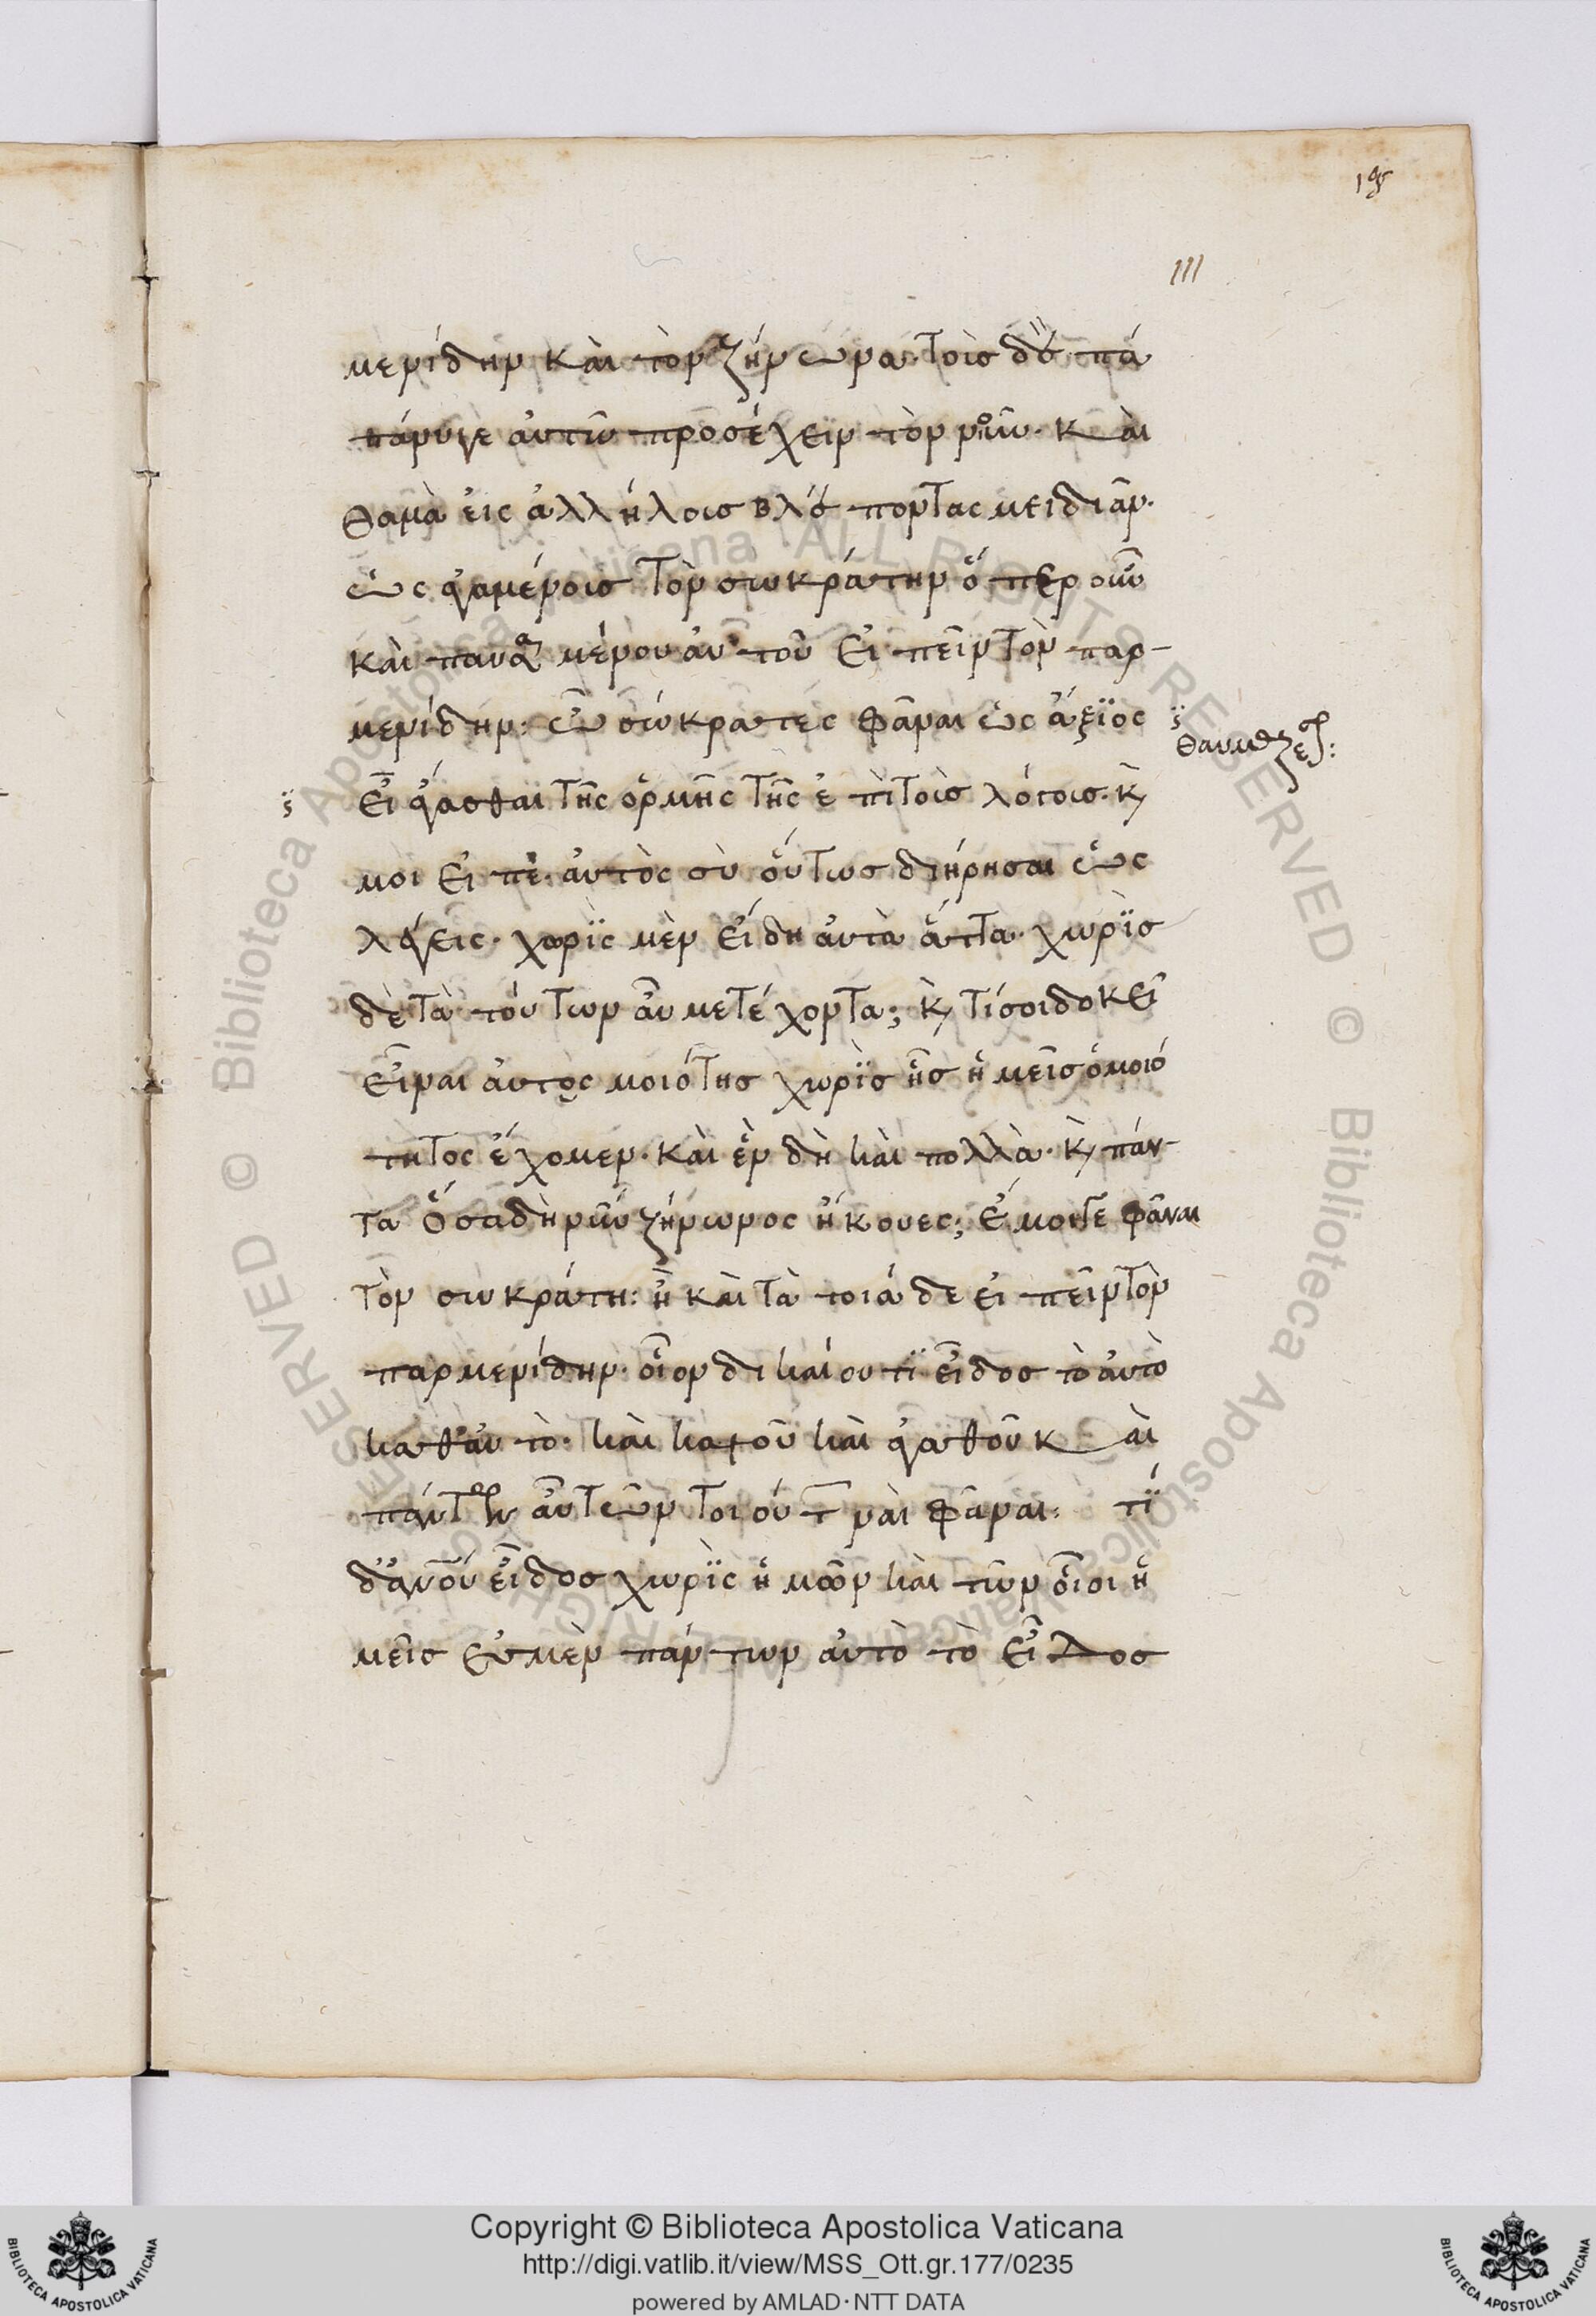 111
μενίδην καὶ τὸν ζήνωνα· τοὺς δὲ πά
πάνυγε αὐτῶ προσέχειν τὸν νοῦν· καὶ
θαμὰ εἰς ἀλλήλους βλέποντας μειδιᾶν·
ὡς ἀγαμένους τὸν σωκράτην ὅπερ οὖν
καὶ παυσαμένου αὐτοῦ εἰπεῖν τὸν παρ-
μενίδην: ὦ σώκρατες φάναι ὡς ἄξιος
θαυμάζεσθ:
εἶ ἄγασθαι τῆς ὁρμῆς τῆς ἐπὶ τοὺς λόγους· κ
μοι εἰπὲ· αὐτὸς σὺ οὕτως διήρησαι ὡς
λέγεις· χωρὶς μὲν εἴδη αὐτὰ ἄττα· χωρὶς
δὲ τὰ τούτων αὖ μετέχοντα; κ τί σοι δοκεῖ
εἶναι αὐτὸς μοιότης χωρὶς ἧς ἡμεῖς ὁμοιό
τητος ἔχομεν· καὶ ἓν δὴ καὶ πολλὰ· κ πάν-
τα ὅσα δὴ νῦν ζήνωνος ἤκουες; ἔμοιγε φάναι
τὸν σωκράτη: ἦ καὶ τὰ τοιάδε εἰπεῖν τὸν
παρμενίδην· οἷον δικαίου τὶ εἶδος τὸ αὐτὸ
καθ' αὑτὸ· καὶ καλοῦ καὶ ἀγαθοῦ καὶ
πάντων αὖ τῶν τοιούτ ναὶ φάναι: τί
δ' ἀνοῦ εἶδος χωρὶς ἡμῶν καὶ τῶν οἷοι ἡ
μεῖς ἐσμὲν πάντων αὐτὸ τὸ εἶδος
Copyright © Biblioteca Apostolica Vaticana
http://digi.vatlib.it/view/MSS_Ott.gr.177/0235
powered by AMLAD·NTT DATA